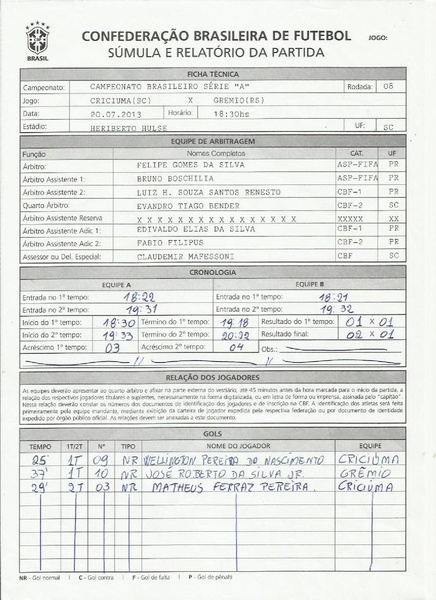 CONFEDERAÇÃO BRASILEIRA DE FUTEBOL JOGO:
SÚMULA E RELATÓRIO DA PARTIDA
BRASIL
FICHA TÉCNICA
Campeonato: CAMPEONATO BRASILEIRO SÉRIE "A" Rodada: 08
Jogo: CRICIUMA(SC) X GREMIO(RS)
Data: 20.07.2013 Horário: 18:30hs
Estádio: HERIBERTO HULSE UF: SC
EQUIPE DE ARBITRAGEM
Função Nomes Completos CAT. UF
Árbitro: FELIPE GOMES DA SILVA ASP-FIFA PR
Árbitro Assistente 1: BRUNO BOSCHILIA ASP-FIFA PR
Árbitro Assistente 2: LUIZ H. SOUZA SANTOS RENESTO CBF-1 PR
Quarto Árbitro: EVANDRO TIAGO BENDER CBF-2 SC
Árbitro Assistente Reserva X X X X X X X X X X X X X X X X XXXXX XX
Árbitro Assistente Adic 1: EDIVALDO ELIAS DA SILVA CBF-1 PR
Árbitro Assistente Adic 2: FABIO FILIPUS CBF-2 PR
Assessor ou Del. Especial: CLAUDEMIR MAFESSONI CBF SC
CRONOLOGIA
EQUIPE A EQUIPE B
Entrada no 1º tempo: 18:22 Entrada no 1º tempo: 18:21
Entrada no 2º tempo: 19:31 Entrada no 2º tempo: 19:32
Início do 1º tempo: 18:30 Término do 1º tempo: 19:18 Resultado do 1º tempo: 01 X 01
Início do 2º tempo: 19:33 Término do 2º tempo: 20:22 Resultado final: 02 X 01
Acréscimo 1º tempo: 03 Acréscimo 2º tempo: 04 Obs.:
RELAÇÃO DOS JOGADORES
As equipes deverão apresentar ao quarto árbitro e afixar na parte externa do vestiário, até 45 minutos antes da hora marcada para o início da partida, a
relação dos respectivos jogadores titulares e suplentes, necessariamente na forma digitalizada, ou em letra de forma ou imprensa, assinada pelo "capitão".
Nesta relação deverão constar os números dos documentos de identificação dos jogadores e de inscrição na CBF. A identificação dos atletas será feita
primeiramente pela equipe mandante, mediante exibição da carteira de jogador expedida pela respectiva federação ou por documento de identidade
expedido por órgão público oficial. As relações devem ser anexadas a este documento.
GOLS
TEMPO 1T/2T Nº TIPO NOME DO JOGADOR EQUIPE
25' 1T 09 NR WELLINGTON PEREIRA DO NASCIMENTO CRICIÚMA
37' 1T 10 NR JOSÉ ROBERTO DA SILVA JR. GRÊMIO
29' 2T 03 NR MATHEUS FERRAZ PEREIRA. CRICIÚMA
NR - Gol normal | C - Gol contra | F - Gol de falta | P - Gol de pênalti